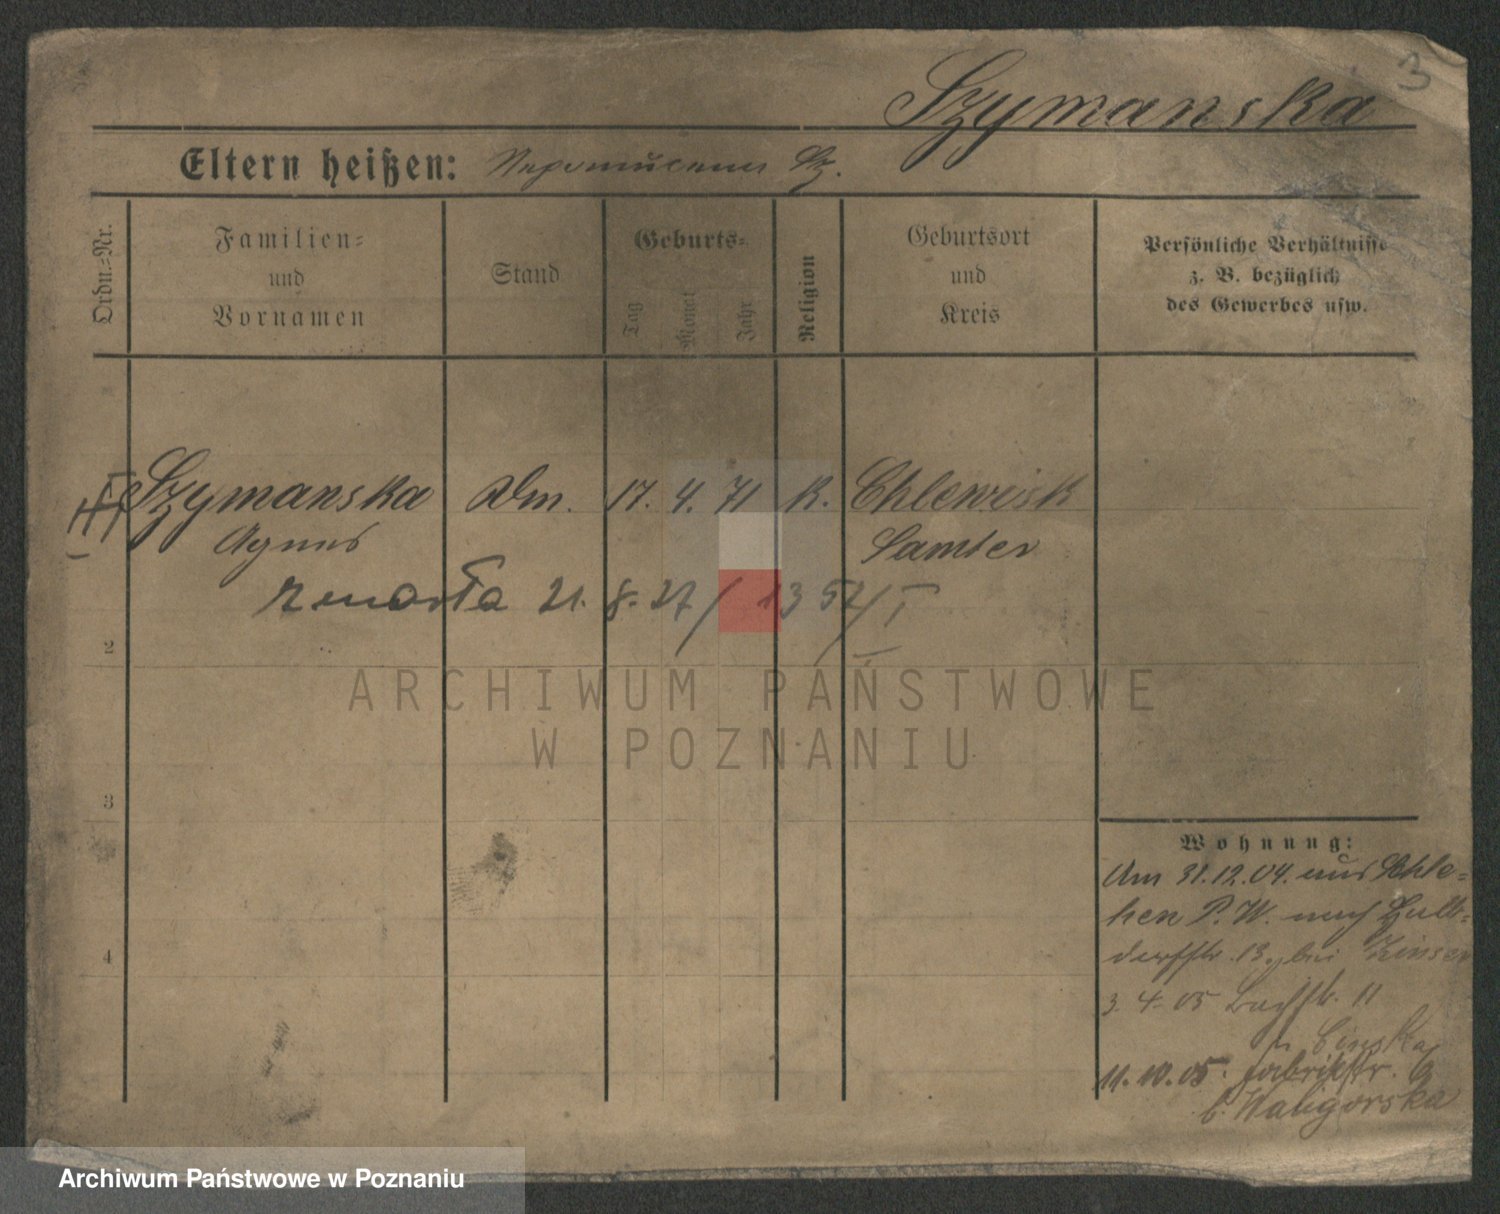 3
Szymanska
Eltern heißen: Nepomucenus Sz.
Ordn.-Nr.
Familien-
und
Vornamen
Stand
Geburts-
Tag
Monat
Jahr
Religion
Geburtsort
und
Kreis
Persönliche Verhältnisse
z. B. bezüglich
des Gewerbes usw.
Szymanska
Agnes
17. 4. 71
K.
Chlewisk
Samter
zmarła 21. 8. 27 / 1357/I
2
3
4
ARCHIWUM PAŃSTWOWE
W POZNANIU
Wohnung:
Am 31.12.04. aus Schle-
hen P. W. nach
13, bei Zinser
3. 4. 05 Bachstr. 11
11. 10. 05. Fabrikstr.
b. Waligorska
Archiwum Państwowe w Poznaniu